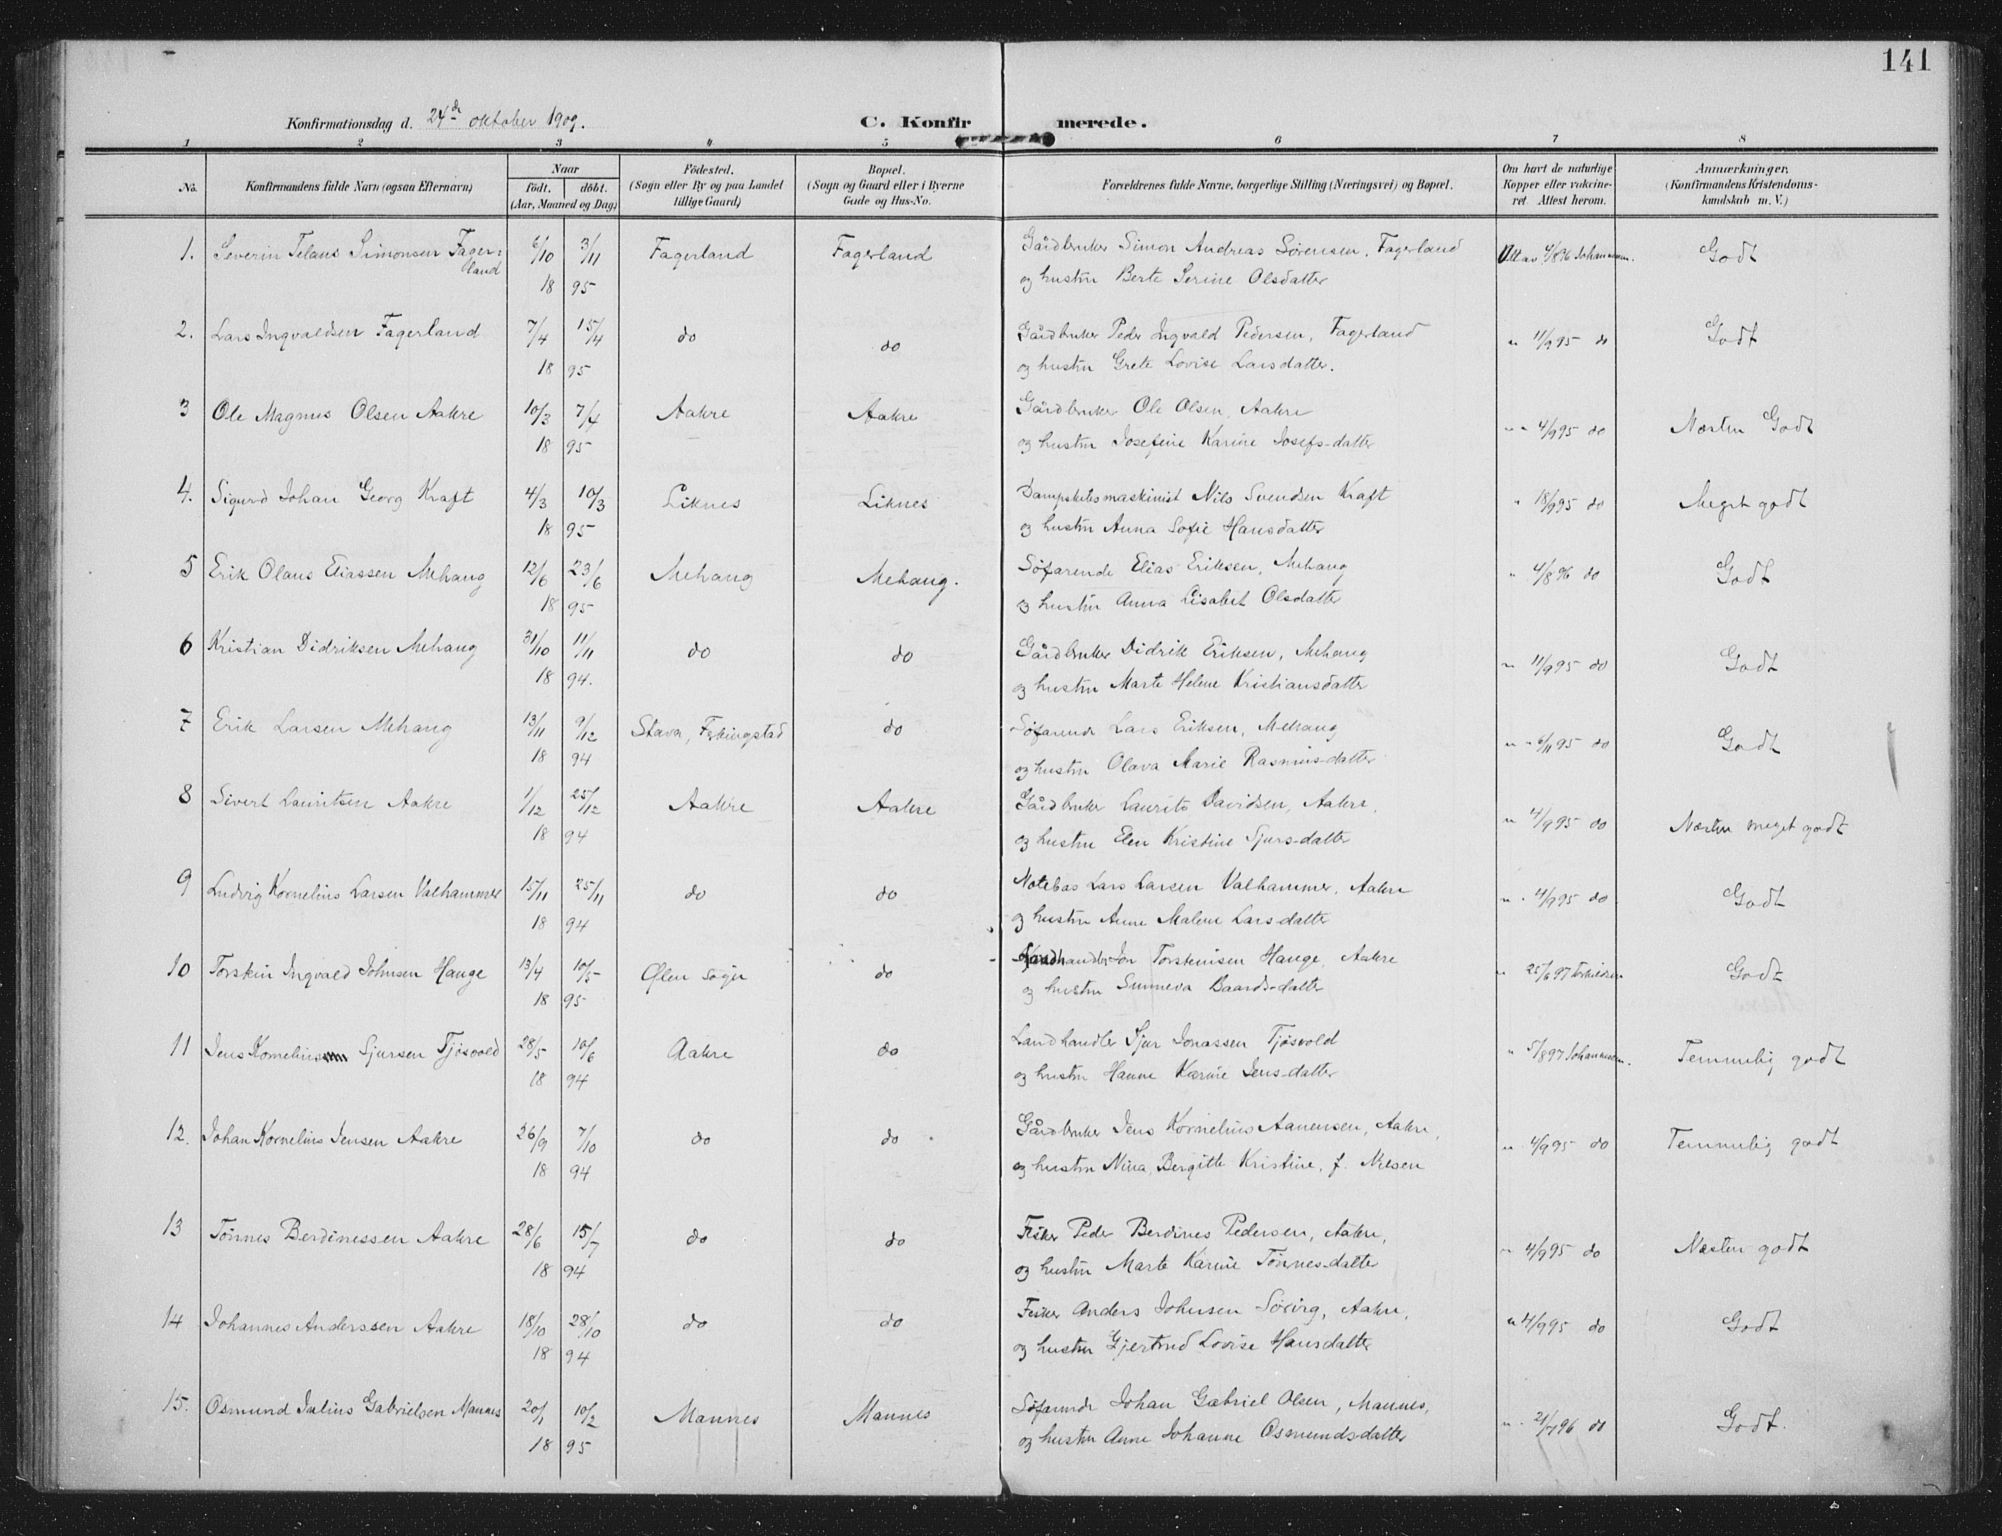 141
Konfirmationsdag d. 24de oktober 1909.
C. Konfirmerede.
1 2 3 4 5 6 7 8
No. Konfirmandens fulde Navn (ogsaa Efternavn) Naar födt. döbt. (Aar, Maaned og Dag) Födested. (Sogn eller By og paa Landet tillige Gaard) Bopæl. (Sogn og Gaard eller i Byerne Gade og Hus-No. Forældrenes fulde Navne, borgerlige Stilling (Næringsvei) og Bopæl. Om havt de naturlige Kopper eller vakcineret Attest herom. Anmærkninger. (Konfirmandens Kristendomskundskab m. V.)
1. Severin Telaus Simonsen Fagerland 6/10 3/11 Fagerland Fagerland Gårdbruker Simon Andreas Sørensen, Fagerland 4/8 96 Johannesen. Godt
18 95 og hustru Berte Serine Olsdatter
2. Lars Ingvaldsen Fagerland 7/4 15/4 do do Gårdbruker Peder Ingvald Pedersen, Fagerland " 11/9 95 do Godt
18 95 og hustru Grete Lovise Larsdatter.
3 Ole Magnus Olsen Aakre 10/3 7/4 Aakre Aakre Gårdbruker Ole Olsen, Aakre " " 4/9 95 do Næsten Godt
18 95 og hustru Josefine Karine Josefs-datter
4. Sigurd Johan Georg Kraft 4/3 10/3 Liknes Liknes Dampskibsmaskinist Nils Svendsen Kraft " 18/9 95 do Meget godt
18 95 og hustru Anna Sofie Hansdatter
5 Erik Olaus Eliassen Mehang 12/6 23/6 Mehang Mehang. Søfarende Elias Eriksen, Mehang " 4/8 96 do Godt
18 95 og hustru Anna Lisabet Olsdatter
6 Kristian Didriksen Mehang 31/10 11/11 do do Gårdbruker Didrik Eriksen, Mehang " 11/9 95 do Godt
18 94. og hustru Marte Helene Kristiansdatter
7 Erik Larsen Mehang 13/11 9/12 Stava, Ferkingstad do Søfarende Lars Eriksen, Mehang " " 6/11 95 do Godt
18 94 og hustru Olava Marie Rasmus-datter
8 Sivert Lauritsen Aakre 1/12 25/12 Aakre Aakre Gårdbruker Laurits Davidsen, Aakre, " 4/9 95 do Næsten meget godt
18 94 og hustru Elen Kristine Sjurs-datter
9 Ludvig Kornelius Larsen Valhammer 15/11 25/11 do do Notebas Lars Larsen Valhammer, Aakre " " 4/9 95 do Godt
18 94 og hustru Anne Malene Lars-datter
10 Torstein Ingvald Johnsen Hauge 13/4 10/5 Ølen sogn do Jon Torsteinsen Hauge, Aakre " 25/6 97 Godt
18 95 og hustru Sunneva Baards-datter
11 Jens Kornelius Sjursen Tjøsvold 28/5 10/6 Aakre do Landhandler Sjur Jonassen Tjøsvold " 5/8 97 Johannesen. Temmelig godt
18 94 og hustru Hanne Karine Jens-datter
12. Johan Kornelius Jensen Aakre 26/9 7/10 do do Gårdbruker Jens Kornelius Aanensen, Aakre, " 4/9 95 do Temmelig godt
18 94 og hustru Nina Bergitte Kristine, f. Nilsen
13 Tønnes Berdinessen Aakre 28/6 15/7 do do Fisker Peder Berdines Pedersen, Aakre, " 4/9 95 do Næsten godt
18 94 og hustru Marte Karine Tønnes-datter
14 Johannes Anderssen Aakre 18/10 28/10 do do Fisker Anders Johnsen Aakre, " 4/9 95 do Godt
18 94 og hustru Gjertrud Lovise Hansdatter
15. Osmund Julius Gabrielsen Mannes 20/1 10/2 Mannes Mannes Søfarende Johan Gabriel Olsen, Mannes, " " 21/7 96 do Godt.
18 95 og hustru Anne Johanne Osmundsdatter